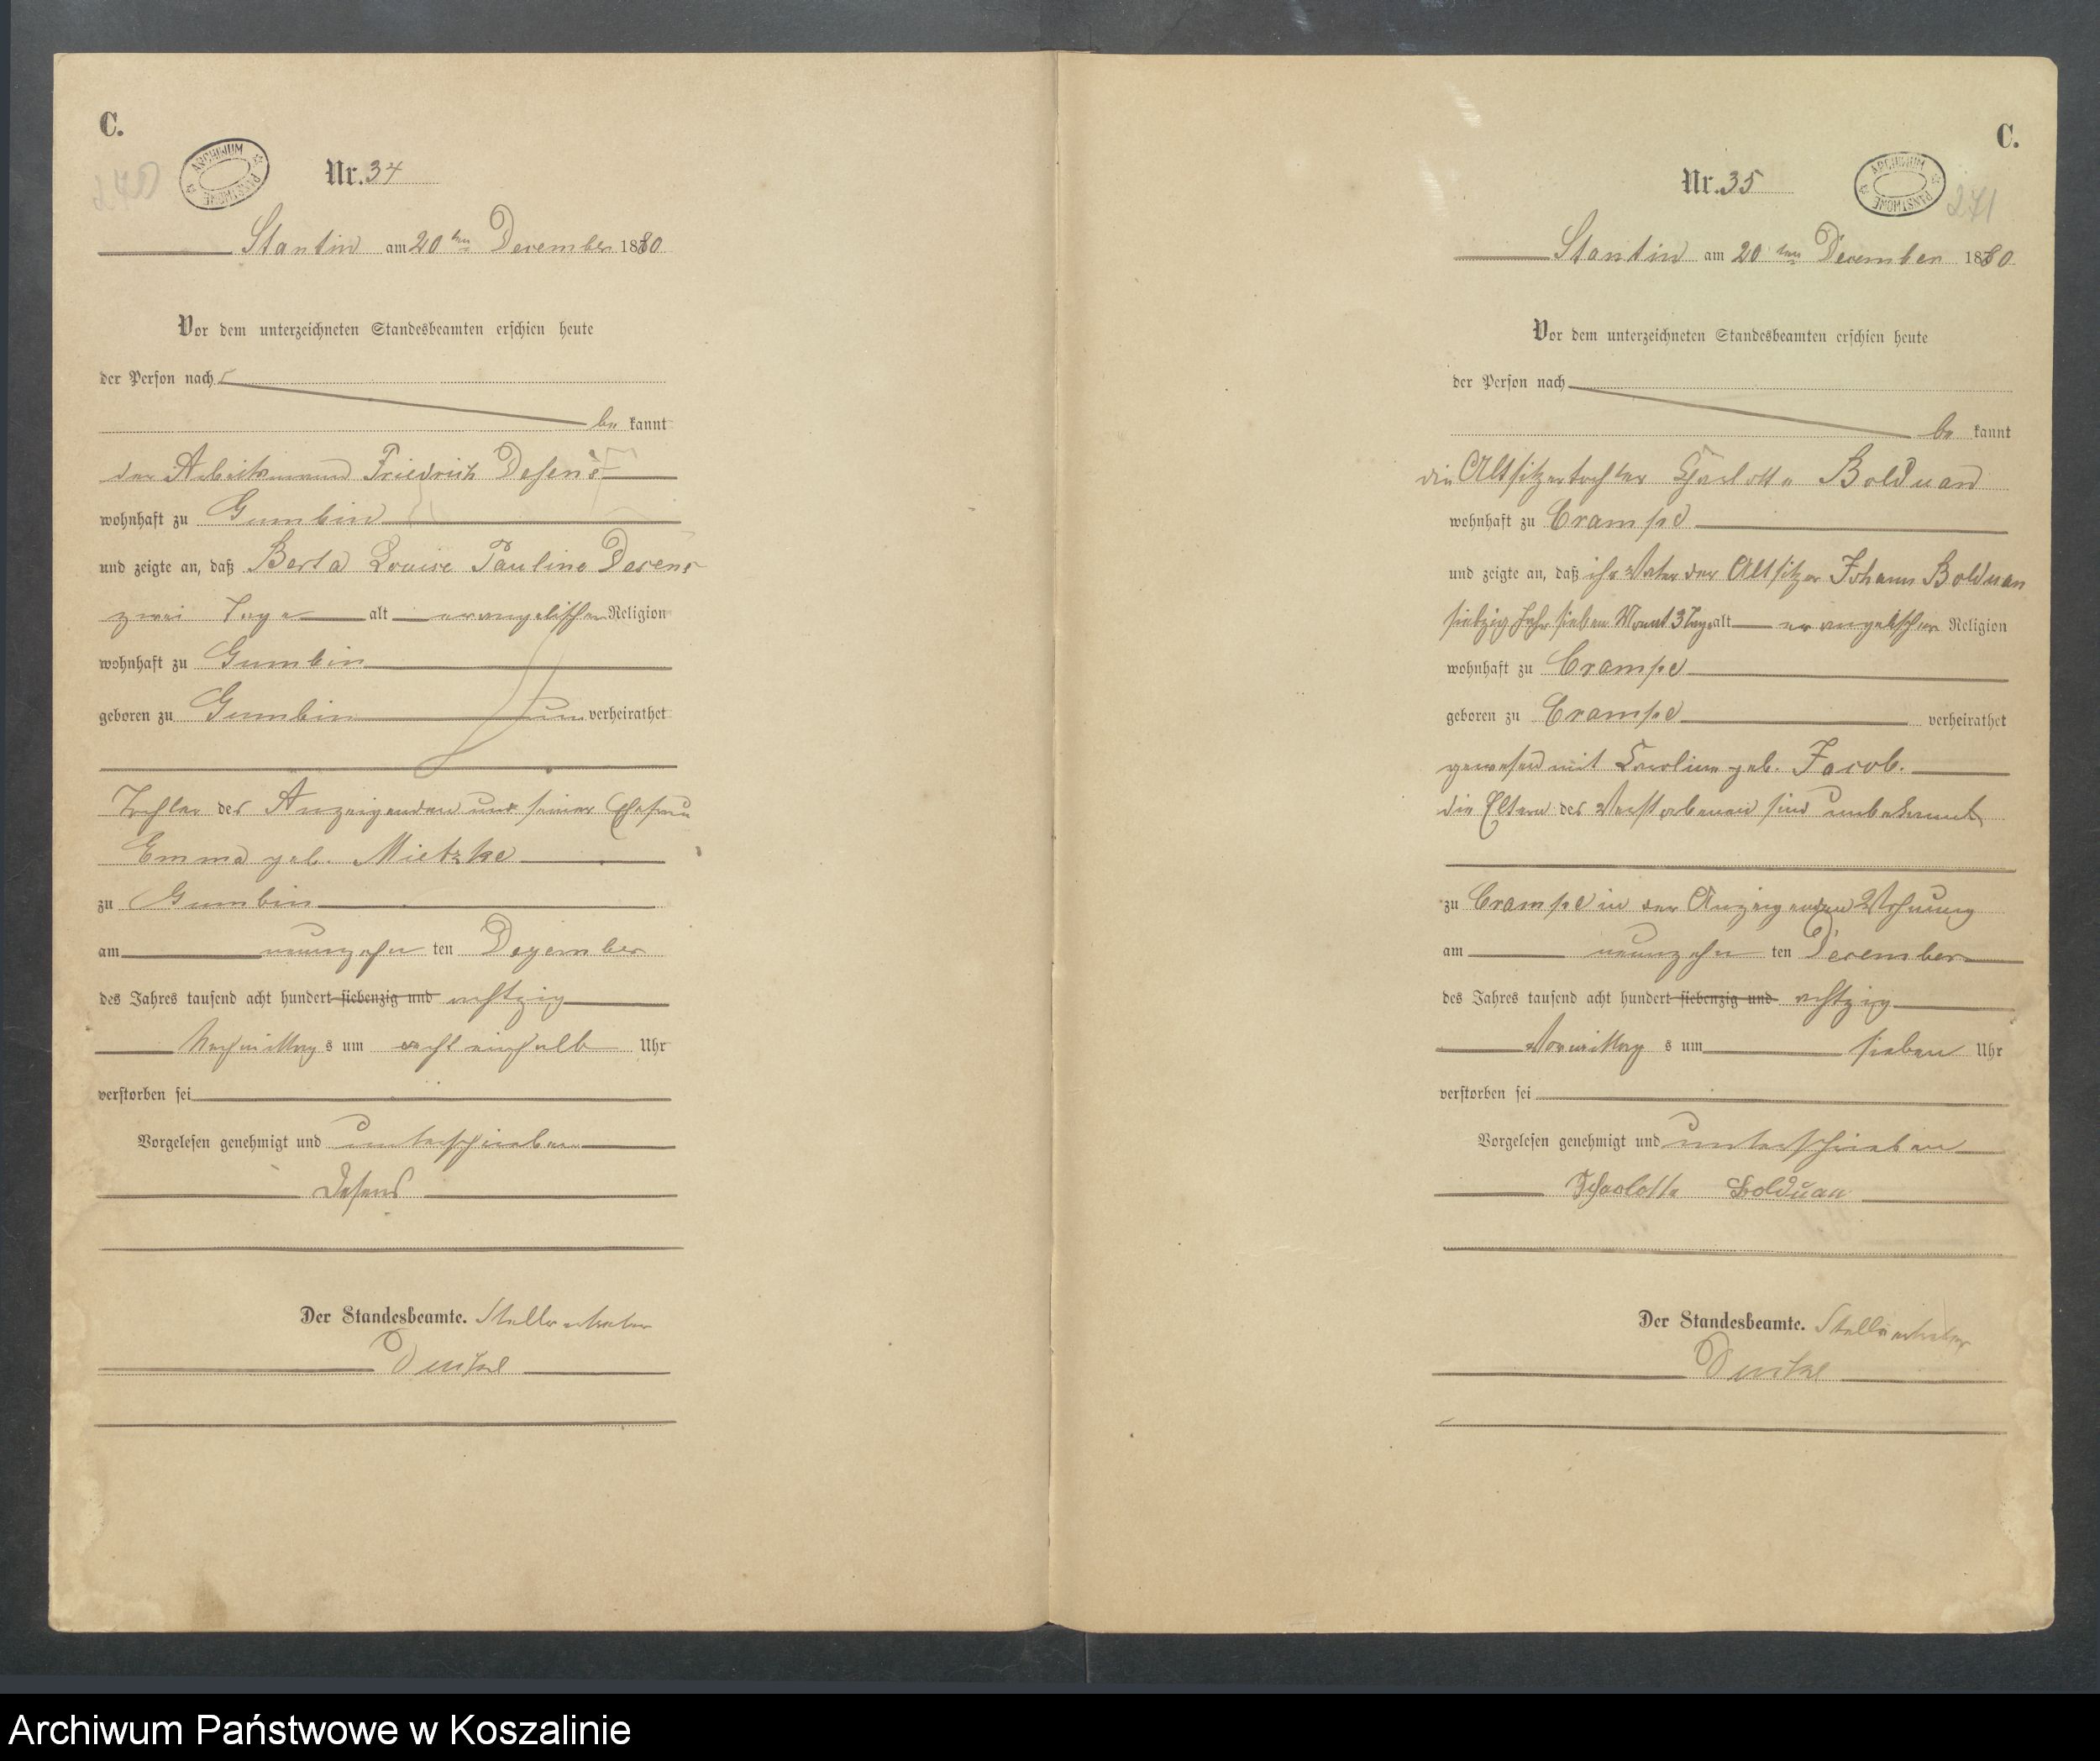 C.
Nr. 34
Stantin am 20ten December 1880
Vor dem unterzeichneten Standesbeamten erschien heute
der Person nach
be kannt
der Arbeitsmann Friedrich Desens
wohnhaft zu Gumbin
und zeigte an, daß Berta Louise Pauline Desens
zwei Tage alt evangelischer Religion
wohnhaft zu Gumbin
geboren zu Gumbin unverheirathet
Tochter des Anzeigenden und seiner Ehefrau
Emma geb. Mietzke
zu Gumbin
am neunzehn ten Dezember
des Jahres tausend acht hundert siebenzig und achtzig
Nachmittags um acht einhalb Uhr
verstorben sei
Vorgelesen genehmigt und unterschrieben
Desens
Der Standesbeamte. Stellvertreter
C.
Nr. 35
271
Stantin am 20ten December 1880
Vor dem unterzeichneten Standesbeamten erschien heute
der Person nach
be kannt
die Altsitzertochter Charlotte Bolduan
wohnhaft zu Crampe
und zeigte an, daß ihr Vater der Altsitzer Johann Bolduan
siebzig Jahr sieben Monat 3 Tage alt evangelischer Religion
wohnhaft zu Crampe
geboren zu Crampe verheirathet
gewesen mit Caroline geb. Jacob.
die Eltern des Verstorbenen sind unbekannt
zu Crampe in der Anzeigenden Wohnung
am neunzehn ten December
des Jahres tausend acht hundert siebenzig und achtzig
Vormittags um sieben Uhr
verstorben sei
Vorgelesen genehmigt und unterschrieben
Scharlotte Bolduan
Der Standesbeamte. Stellvertreter
ARCHIWUM PAŃSTWOWE
ARCHIWUM PAŃSTWOWE
Archiwum Państwowe w Koszalinie